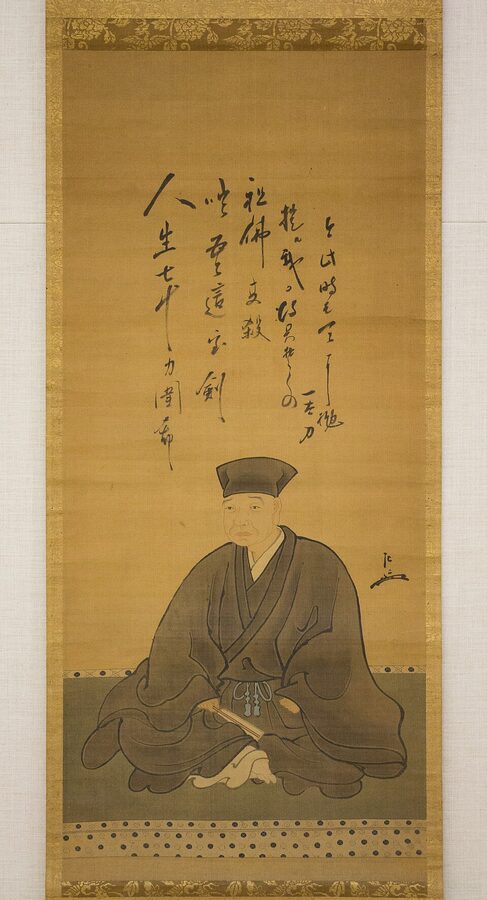 人生七十力圍希
咄吾這宝剣
祖佛共殺
提ル我ル得具足の
一太刀
今此時そ天に抛